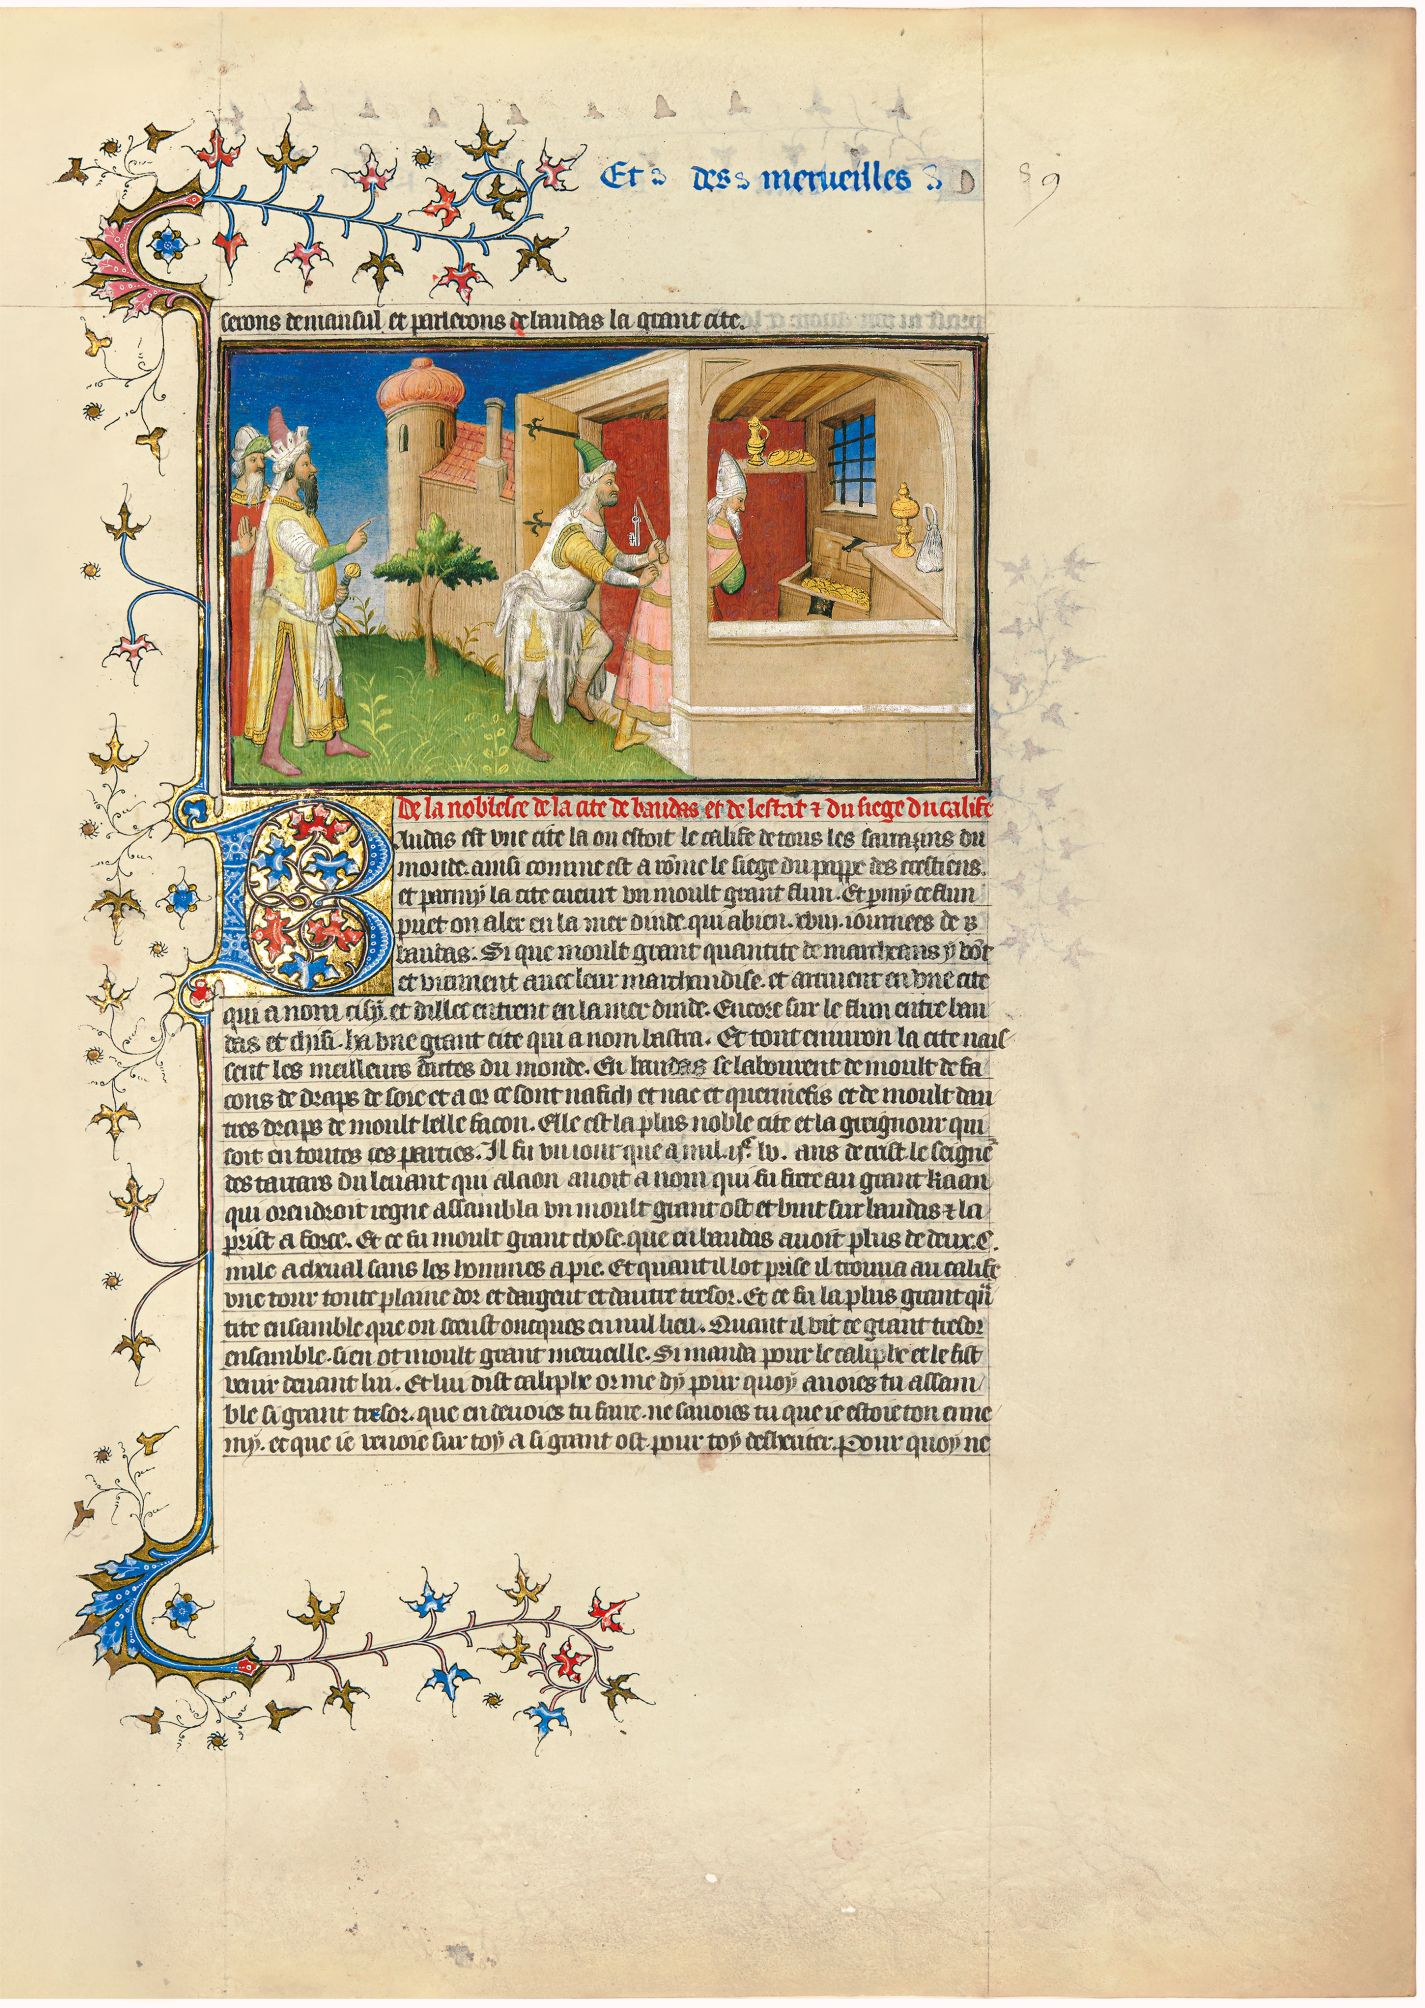 Et des merueilles
9
serons de mausul et parlerons de baudas la grant cite.
De la noblesce de la cite de baudas et de lestat ⁊ du siege du calife
Baudas est vne cite la ou estoit le calife de tous les sarrazins du
monde. ainsi comme est a rōme le siege du pappe des crestiens.
et parmy la cite cueurt vn moult grant flun. Et pmy ce flun
puet on aler en la mer dinde. qui a bien .xviij. iournees de
baudas. Si que moult grant quantite de marcheans y vōt
et viennent auec leur marchandise. et arriuent en vne cite
qui a nom cisy. et dillec entrent en la mer dinde. Encore sur le flun entre bau
das et chisi. ha vne grant cite qui a nom bastra. Et tout enuiron la cite nais
sent les meilleurs dates du monde. En baudas se labourent de moult de fa
cons de draps de soie et a or ce sont nasich et nac et quermesis et de moult dau
tres draps de moult belle facon. Elle est la plus noble cite et la greignour qui
soit en toutes ces parties. Il fu vn iour que a mil. ijᶜ. lv. ans de crist. le seigne
des tartars du leuant qui alaon auoit a nom qui fu frere au grant kaan
qui orendroit regne assambla vn moult grant ost et vint sur baudas ⁊ la
prist a force. Et ce fu moult grant chose. que en baudas auoit plus de deux. C.
mile a cheual sans les hommes a pie. Et quant il lot prise il trouua au calife
vne tour toute plaine dor et dargent et dautre tresor. Et ce fu la plus grant quā
tite ensamble que on sceust oncques en nul lieu. Quant il vit ce grant tresor
ensamble. si en ot moult grant merueille. Si manda pour le caliphe et le fist
venir deuant lui. Et lui dist caliphe or me dy pour quoy auoies tu assam
ble si grant tresor. que en deuoies tu faire. ne sauoies tu que ie estoie ton enne
my. et que ie venoie sur toy a si grant ost. pour toy desheriter. Pour quoy ne